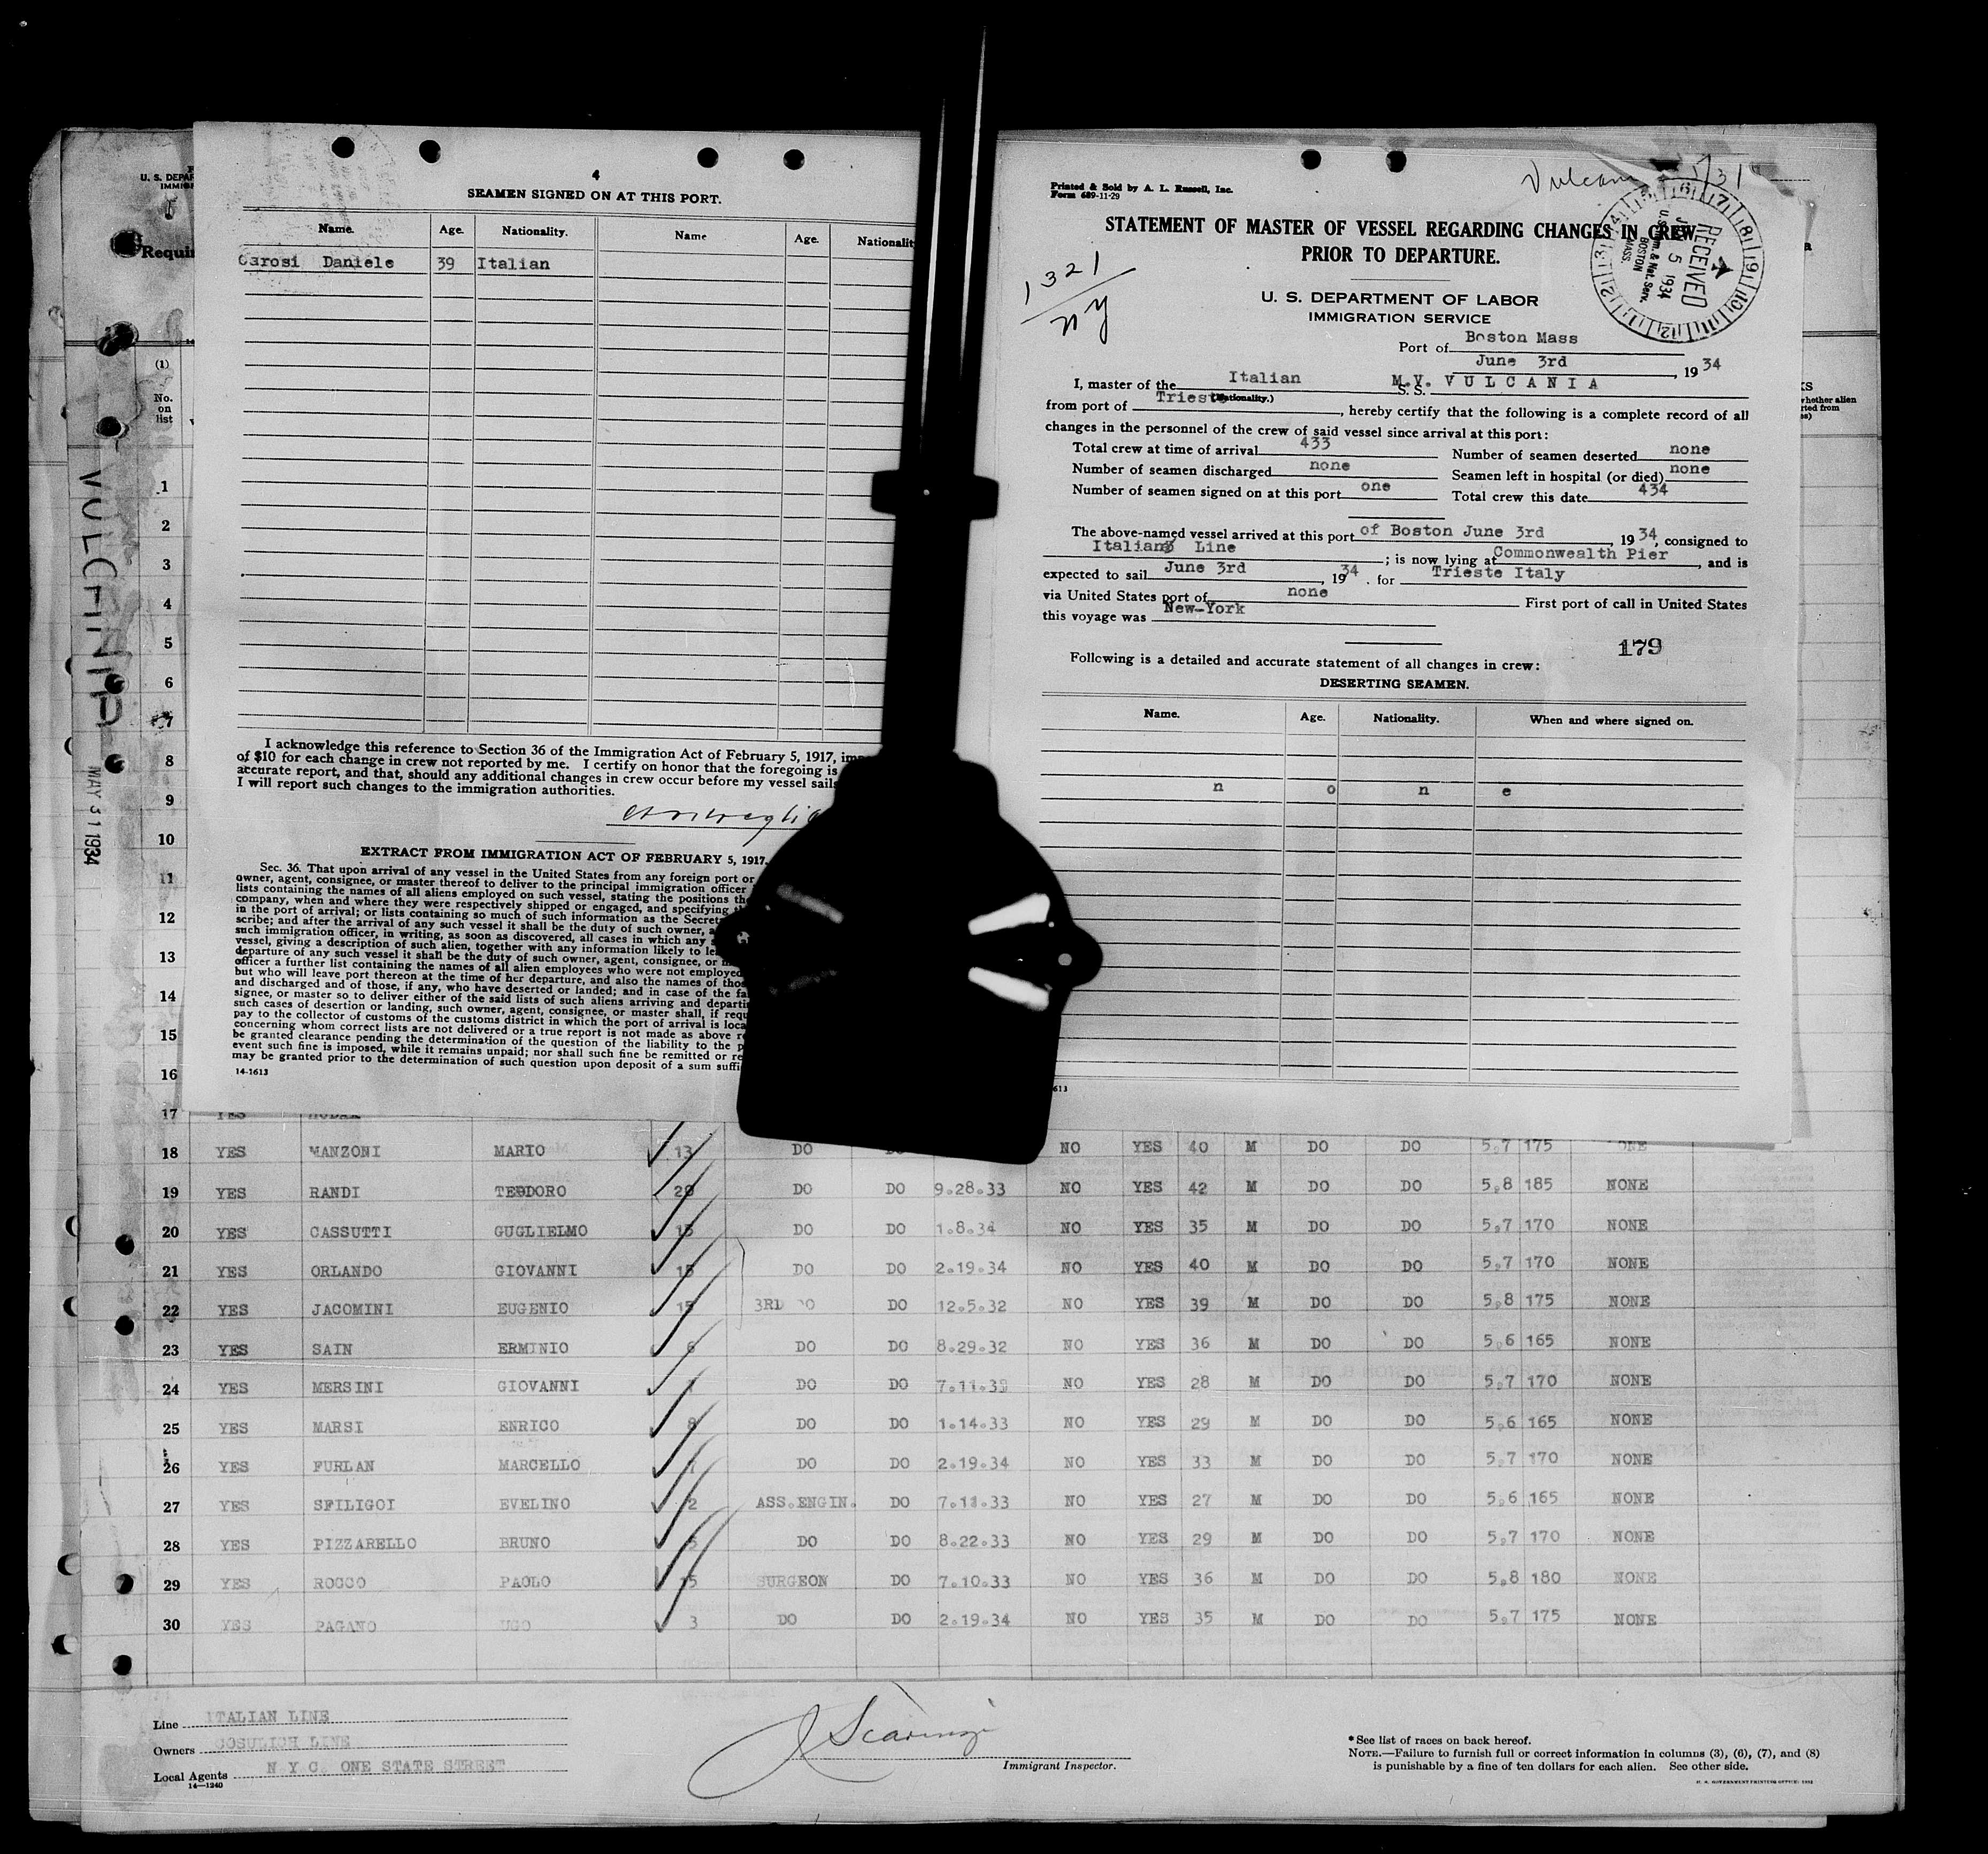 4
SEAMEN SIGNED ON AT THIS PORT.
Name. Age. Nationality. Name Age. Nationalit
Carosi Daniele 39 Italian
I acknowledge this reference to Section 36 of the Immigration Act of February 5, 1917,
of $10 for each change in crew not reported by me. I certify on honor that the foregoing is
accurate report, and that, should any additional changes in crew occur before my vessel sails
I will report such changes to the immigration authorities.
EXTRACT FROM IMMIGRATION ACT OF FEBRUARY 5, 1917.
Sec. 36. That upon arrival of any vessel in the United States from any foreign port or
owner, agent, consignee, or master thereof to deliver to the principal immigration officer
lists containing the names of all aliens employed on such vessel, stating the positions the
company, when and where they were respectively shipped or engaged, and specifying
in the port of arrival; or lists containing so much of such information as the Secret
scribe; and after the arrival of any such vessel it shall be the duty of such owner,
such immigration officer, in writing, as soon as discovered, all cases in which any
vessel, giving a description of such alien, together with any information likely to le
departure of any such vessel it shall be the duty of such owner, agent, consignee, or
officer a further list containing the names of all alien employees who were not employed
but who will leave port thereon at the time of her departure, and also the names of thos
and discharged and of those, if any, who have deserted or landed; and in case of the fa
signee, or master so to deliver either of the said lists of such aliens arriving and departi
such cases of desertion or landing, such owner, agent, consignee, or master shall, if requ
pay to the collector of customs of the customs district in which the port of arrival is loca
concerning whom correct lists are not delivered or a true report is not made as above r
be granted clearance pending the determination of the question of the liability to the p
event such fine is imposed, while it remains unpaid; nor shall such fine be remitted or re
may be granted prior to the determination of such question upon deposit of a sum suffi
14-1613
Printed & Sold by A. L. Russell, Inc.
Form 689-11-29
STATEMENT OF MASTER OF VESSEL REGARDING CHANGES IN CREW
PRIOR TO DEPARTURE.
1321
ny
RECEIVED
5 1934
BOSTON
MASS.
U. S. DEPARTMENT OF LABOR
IMMIGRATION SERVICE
Port of Boston Mass
June 3rd, 1934
I, master of the Italian M.V. S.S. VULCANIA
(Nationality.)
from port of Trieste, hereby certify that the following is a complete record of all
changes in the personnel of the crew of said vessel since arrival at this port:
Total crew at time of arrival 433 Number of seamen deserted none
Number of seamen discharged none Seamen left in hospital (or died) none
Number of seamen signed on at this port one Total crew this date 434
The above-named vessel arrived at this port of Boston June 3rd, 1934, consigned to
Italian Line; is now lying at Commonwealth Pier, and is
expected to sail June 3rd, 1934. for Trieste Italy
via United States port of none First port of call in United States
this voyage was New-York
179
Following is a detailed and accurate statement of all changes in crew:
DESERTING SEAMEN.
Name. Age. Nationality. When and where signed on.
n o n e
613
U. S. DEPA
IMMIG
Requir
(1)
No. on list
VULCANIA
MAY 31 1934
1
2
3
4
5
6
7
8
9
10
11
12
13
14
15
16
17 YES
18 YES MANZONI MARIO 13 DO NO YES 40 M DO DO 5.7 175
19 YES RANDI TEODORO 20 DO DO 9.28.33 NO YES 42 M DO DO 5.8 185 NONE
20 YES CASSUTTI GUGLIELMO 15 DO DO 1.8.34 NO YES 35 M DO DO 5.7 170 NONE
21 YES ORLANDO GIOVANNI 15 DO DO 2.19.34 NO YES 40 M DO DO 5.7 170 NONE
22 YES JACOMINI EUGENIO 15 3RD DO DO 12.5.32 NO YES 39 M DO DO 5.8 175 NONE
23 YES SAIN ERMINIO 6 DO DO 8.29.32 NO YES 36 M DO DO 5.6 165 NONE
24 YES MERSINI GIOVANNI DO DO 7.11.33 NO YES 28 M DO DO 5.7 170 NONE
25 YES MARSI ENRICO 8 DO DO 1.14.33 NO YES 29 M DO DO 5.6 165 NONE
26 YES FURLAN MARCELLO DO DO 2.19.34 NO YES 33 M DO DO 5.7 170 NONE
27 YES SFILIGOI EVELINO 2 ASS.ENGIN. DO 7.11.33 NO YES 27 M DO DO 5.6 165 NONE
28 YES PIZZARELLO BRUNO 5 DO DO 8.22.33 NO YES 29 M DO DO 5.7 170 NONE
29 YES ROCCO PAOLO 15 SURGEON DO 7.10.33 NO YES 36 M DO DO 5.8 180 NONE
30 YES PAGANO UGO 3 DO DO 2.19.34 NO YES 35 M DO DO 5.7 175 NONE
Line ITALIAN LINE
Owners COSULICH LINE
Local Agents N Y C. ONE STATE STREET
14-1240
Immigrant Inspector.
*See list of races on back hereof.
NOTE.—Failure to furnish full or correct information in columns (3), (6), (7), and (8)
is punishable by a fine of ten dollars for each alien. See other side.